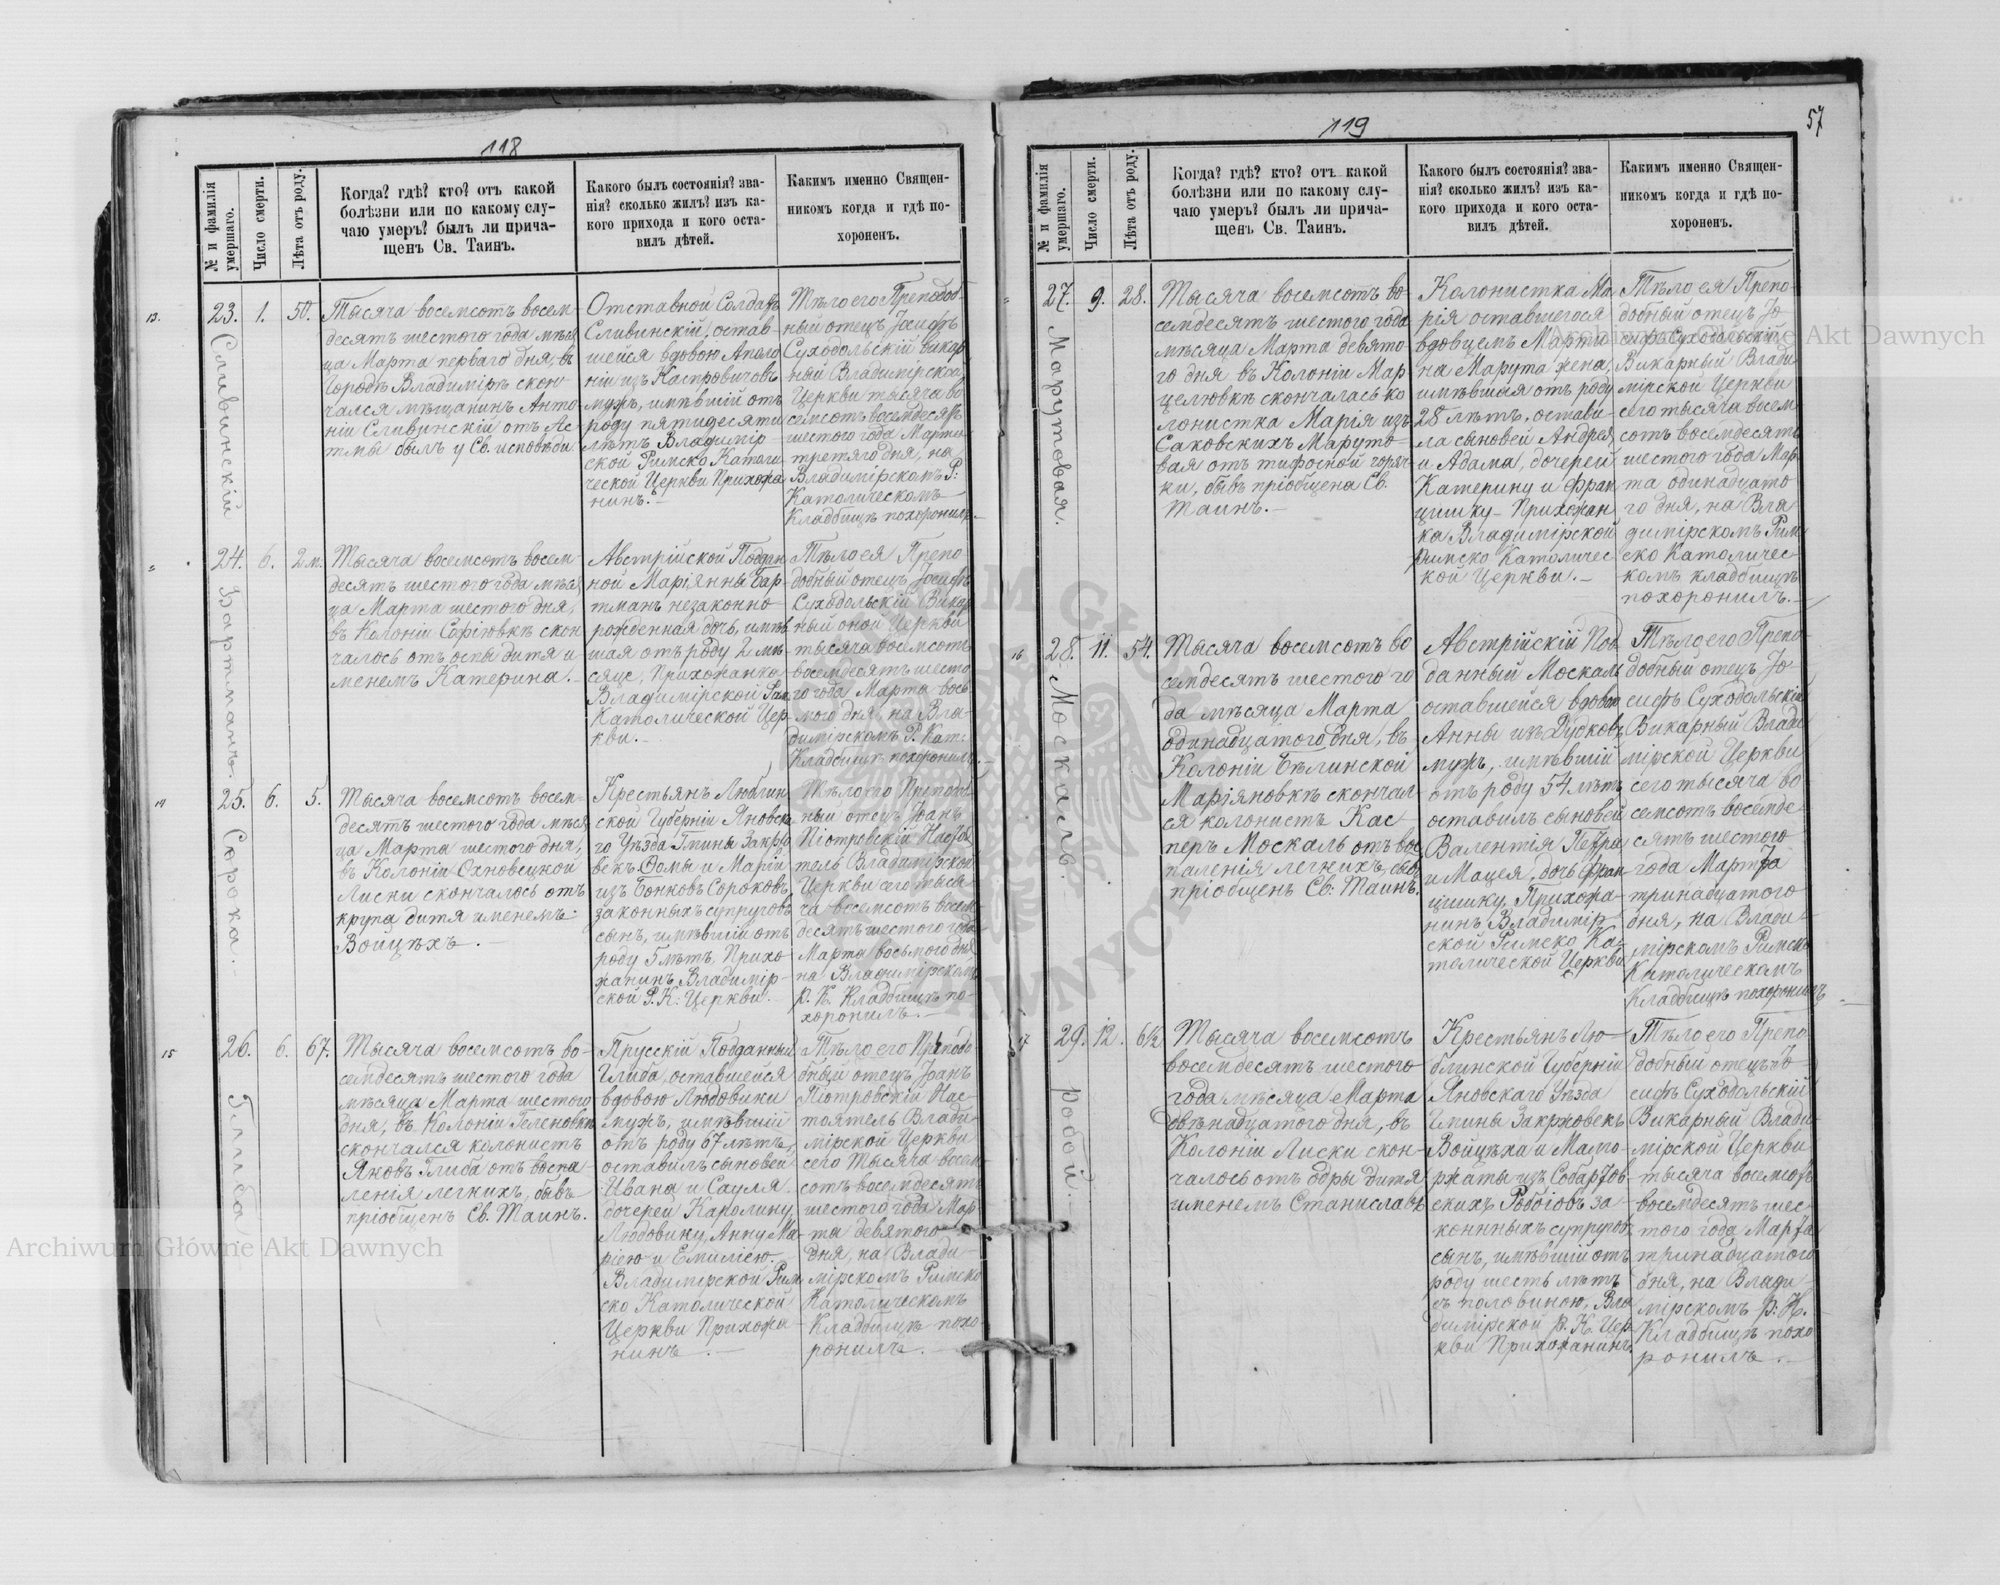 118
№ и фамилія умершаго.
Число смерти.
Лѣта отъ роду.
Когда? гдѣ? кто? отъ какой
болѣзни или по какому слу-
чаю умеръ? былъ ли прича-
щенъ Св. Таинъ.
Какого былъ состоянія? зва-
нія? сколько жилъ? изъ ка-
кого прихода и кого оста-
вилъ дѣтей.
Какимъ именно Священ-
никомъ когда и гдѣ по-
хороненъ.
13.
23.
Сливинскій
1.
50.
Тысяча восемсотъ восем-
десятъ шестого года мѣся
ца Марта перваго дня, въ
Городѣ Владимірѣ скон-
чался мѣщанинъ Анто-
ній Сливинскій отъ Ас
тмы былъ у Св. исповѣди
Отставной Солдатъ
Сливинскій, остав-
шейся вдовою Аполо
ніи изъ Каспровичовъ
мужъ, имѣвшій отъ
роду пятидесяти
лѣтъ Владимір-
ской Римско Католи
ческой Церкви Прихожа
нинъ.-
Тѣло его Преподоб-
ный отецъ Іосифъ
Суходольскій викар
ный Владимірской
Церкви тысяча во
семсотъ восемдесятъ
шестого года Марта
третяго дня, на
Владимірскомъ Р:
Католическомъ
Кладбищѣ похоронилъ.-
24.
Бартманъ.
6.
2 м.
Тысяча восемсотъ восем
десятъ шестого года мѣся
ца Марта шестого дня,
въ Колоніи Софіювкѣ скон
чалось отъ оспы дитя и
менемъ Катерина.-
Австрійской Поддан
ной Маріянны Бар
тманъ незаконно-
рожденная дочь, имѣв
шая отъ роду 2 мѣ-
сяце, Прихожанка
Владимірской Рим
Католической Цер
кви.-
Тѣло ея Препо
добный отецъ Іосифъ
Суходольскій Викар
ный оной Церкви
тысяча восемсотъ
восемдесятъ шесто
го года Марта вось
мого дня, на Вла-
димірскомъ Р. Кат:
Кладбищѣ похоронилъ.-
14
25.
Сюрока.-
6.
5.
Тысяча восемсотъ восем-
десятъ шестого года мѣся
ца Марта шестого дня,
въ Колоніи Охновецкой
Лиски скончалось отъ
крупа дитя именемъ
Войцѣхъ.-
Крестьянъ Люблин
ской Губерніи Яновска
го Уѣзда Гмины Закржо
векъ Ѳомы и Маріи
изъ Бонковъ Сороковъ,
законныхъ супруговъ
сынъ, имѣвшій отъ
роду 5 лѣтъ, Прихо
жанинъ Владимір-
ской Р. К: Церкви.
Тѣло его Преподоб
ный отецъ Іоанъ
Піотровскій Настоя
тель Владимірской
Церкви сего тыся
ча восемсотъ восем-
десятъ шестого года
Марта восьмого дня
на Владимірскомъ
Р. К. Кладбищѣ по-
хоронилъ.-
15
26.
Глиба.
6.
67.
Тысяча восемсотъ во-
семдесятъ шестого года
мѣсяца Марта шестого
дня, въ Колоніи Геленовкѣ
скончался колонистъ
Яковъ Глиба отъ воспа-
ленія легкихъ, бывъ
пріобщенъ Св. Таинъ.
Прусскій Подданный
Глиба, оставшейся
вдовою Людовики
мужъ, имѣвшій
отъ роду 67 лѣтъ,
оставилъ сыновей
Ивана и Сауля
дочерей Каролину,
Людовику, Анну Ма
рію и Емилію.
Владимірской Рим
ско Католической
Церкви Прихожа-
нинъ.-
Тѣло его Преподо
бный отецъ Іоанъ
Піотровскій Нас-
тоятель Влади-
мірской Церкви
сего тысяча восем-
сотъ восемдесятъ
шестого года Мар-
та девятого
дня, на Влади-
мірскомъ Римско
Католическомъ
Кладбищѣ похо-
ронилъ.-
119
57
№ и фамилія умершаго.
Число смерти.
Лѣта отъ роду.
Когда? гдѣ? кто? отъ какой
болѣзни или по какому слу-
чаю умеръ? былъ ли прича-
щенъ Св. Таинъ.
Какого былъ состоянія? зва-
нія? сколько жилъ? изъ ка-
кого прихода и кого оста-
вилъ дѣтей.
Какимъ именно Священ-
никомъ когда и гдѣ по-
хороненъ.
27.
Марутовая.
9.
28.
Тысяча восемсотъ во-
семдесятъ шестого года
мѣсяца Марта девято-
го дня въ Колоніи Мар
целювкѣ скончалась ко
лонистка Марія изъ
Саковскихъ Маруто-
вая отъ тифосной горяч-
ки, бывъ пріобщена Св.
Таинъ.-
Колонистка Ма
рія оставшегося
вдовцемъ Марти
на Марута жена,
имѣвшая отъ роду
28 лѣтъ, остави-
ла сыновей Андрея
и Адама, дочерей
Катерину и Фран
цишку - Прихожан
ка Владимірской
Римско Католичес-
кой Церкви.-
Тѣло ея Препо-
добный отецъ Іо
сифъ Суходольскій
Викарный Влади
мірской Церкви
сего тысяча восем
сотъ восемдесятъ
шестого года Мар
та одинадцато
го дня, на Вла
димірскомъ Рим
ско Католичес-
комъ кладбищѣ
похоронилъ.-
16
28.
Москаль.
11.
54.
Тысяча восемсотъ во
семдесятъ шестого го
да мѣсяца Марта
одинадцатого дня, въ
Колоніи Бѣлинской
Маріяновкѣ скончал-
ся колонистъ Кас-
перъ Москаль отъ вос
паленія легкихъ, бывъ
пріобщенъ Св: Таинъ.
Австрійскій Под
данный Москаль
оставшейся вдовою
Анны изъ Дусковъ
мужъ, имѣвшій
отъ роду 54 лѣтъ
оставилъ сыновей
Валентія Петра
и Мацея, дочь Фран
цишку, Прихожа-
нинъ Владимір-
ской Римско Ка-
толической Церкви
Тѣло его Препо-
добный отецъ Іо
сифъ Суходольскій
Викарный Влади
мірской Церкви
сего тысяча во-
семсотъ восемде
сятъ шестого
года Марта
тринадцатого
дня, на Влади-
мірскомъ Римско
Католическомъ
Кладбищѣ похоронилъ
17
29.
Робой.
12.
6½
Тысяча восемсотъ
восемдесятъ шестого
года мѣсяца Марта
двѣнадцатого дня, въ
Колоніи Лиски скон-
чалось отъ одры дитя
именемъ Станиславъ
Крестьянъ Лю-
блинской Губерніи
Яновскаго Уѣзда
Гмины Закржовекъ
Войцѣха и Малго-
ржаты изъ Собартов
скихъ Робоіовъ за-
конныхъ супруговъ
сынъ, имѣвшій отъ
роду шесть лѣтъ
съ половиною, Вла
димірской Р. К. Цер
кви Прихожанинъ.
Тѣло его Препо-
добный отецъ Іо
сифъ Суходольскій
Викарный Влади
мірской Церкви
тысяча восемсотъ
восемдесятъ шес-
того года Марта
тринадцатого
дня, на Влади-
мірскомъ Р: К.
Кладбищѣ похо
ронилъ.-
Archiwum Główne Akt Dawnych
Archiwum Główne Akt Dawnych